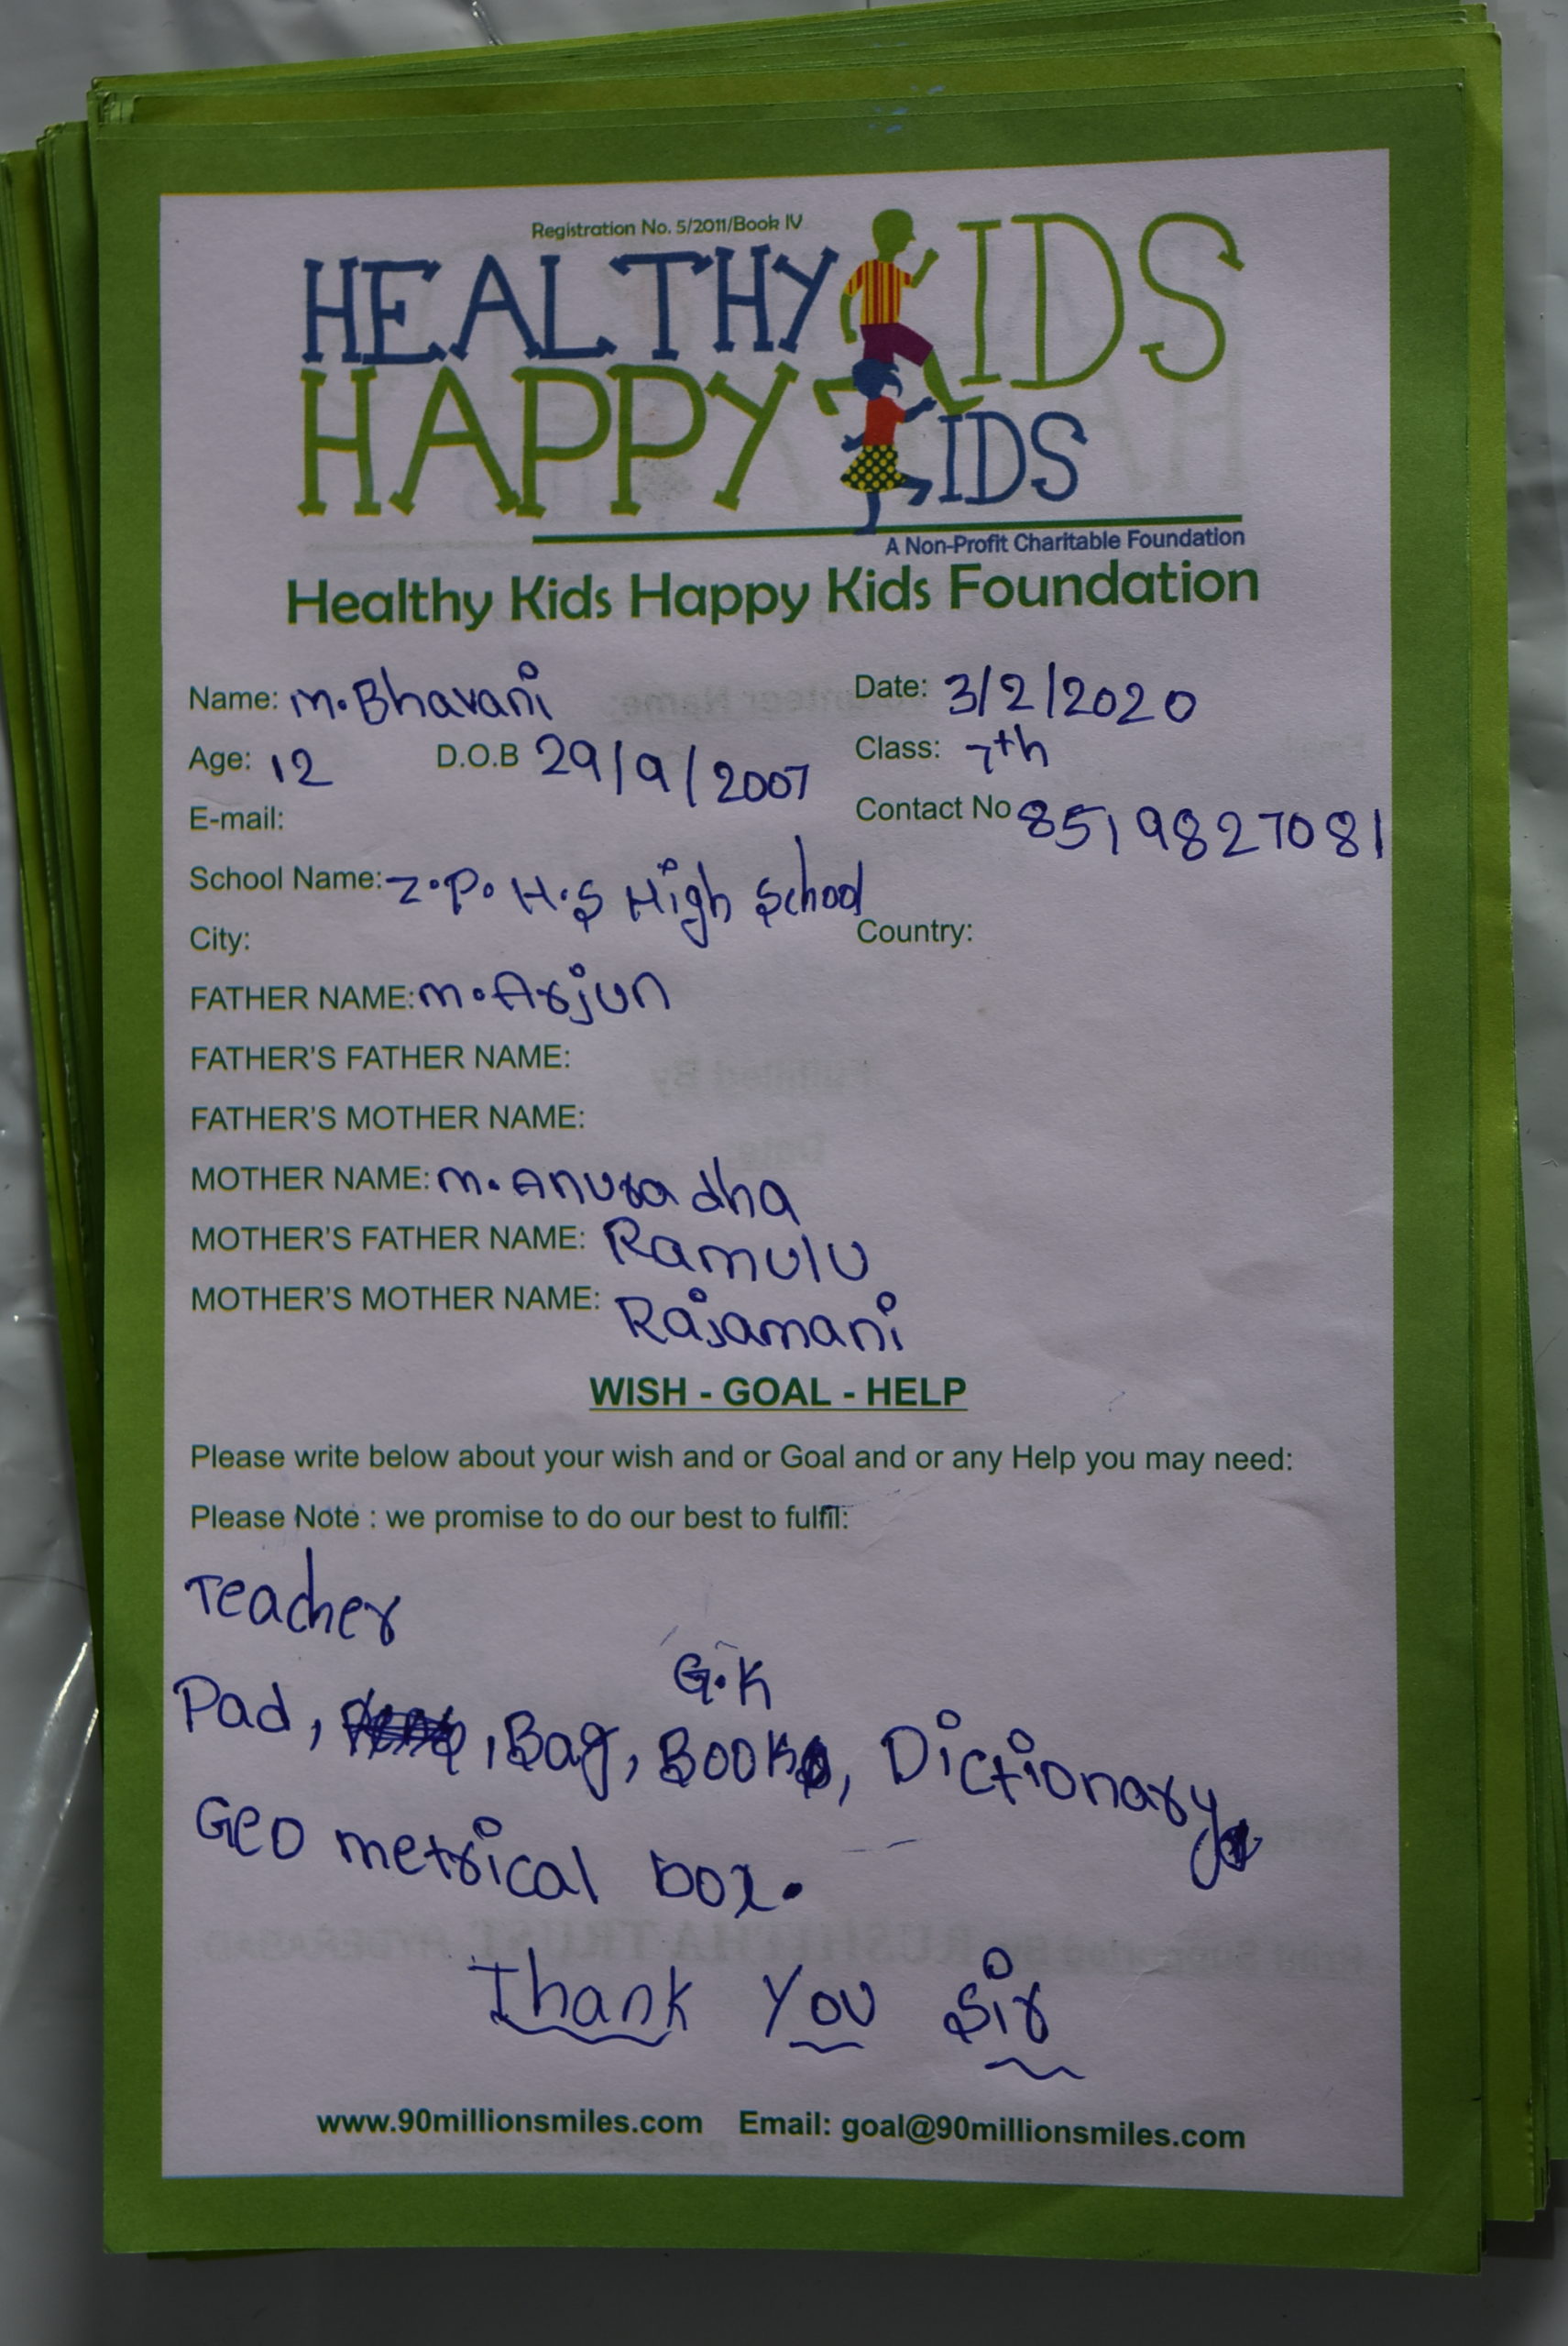 Registration No. 5/2011/Book IV
HEALTHY KIDS
HAPPY KIDS
A Non-Profit Charitable Foundation
Healthy Kids Happy Kids Foundation
Name: M.Bhavani Date: 3/2/2020
Age: 12 D.O.B 29/9/2007 Class: 7th
E-mail: Contact No 8519827081
School Name: Z.P.H.S High School
City: Country:
FATHER NAME: M.Arjun
FATHER'S FATHER NAME:
FATHER'S MOTHER NAME:
MOTHER NAME: M.Anuradha
MOTHER'S FATHER NAME: Ramulu
MOTHER'S MOTHER NAME: Rajamani
WISH - GOAL - HELP
Please write below about your wish and or Goal and or any Help you may need:
Please Note : we promise to do our best to fulfil:
Teacher
G.K
Pad, , Bag, Book, Dictionary
Geo metrical box.
Thank You Sir
www.90millionsmiles.com Email: goal@90millionsmiles.com